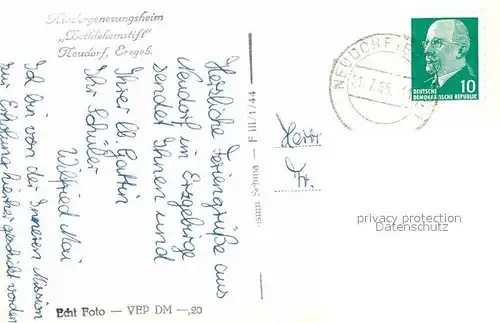 Kindergenesungsheim
„Bethlehemstift"
Neudorf, Erzgeb.
Herzliche Feriengrüße aus
Neudorf im Erzgebirge
sendet Ihnen und
Ihrer lb. Gattin
Ihr Schüler
Wilfried Mai
Ich bin von der Inneren Mission
zur Erholung hierher geschickt worden
Echt Foto — VEB DM —,20
Sehma — F III/1/44
Herr
Fr.
NEUDORF
DEUTSCHE
DEMOKRATISCHE REPUBLIK
10
privacy protection
Datenschutz